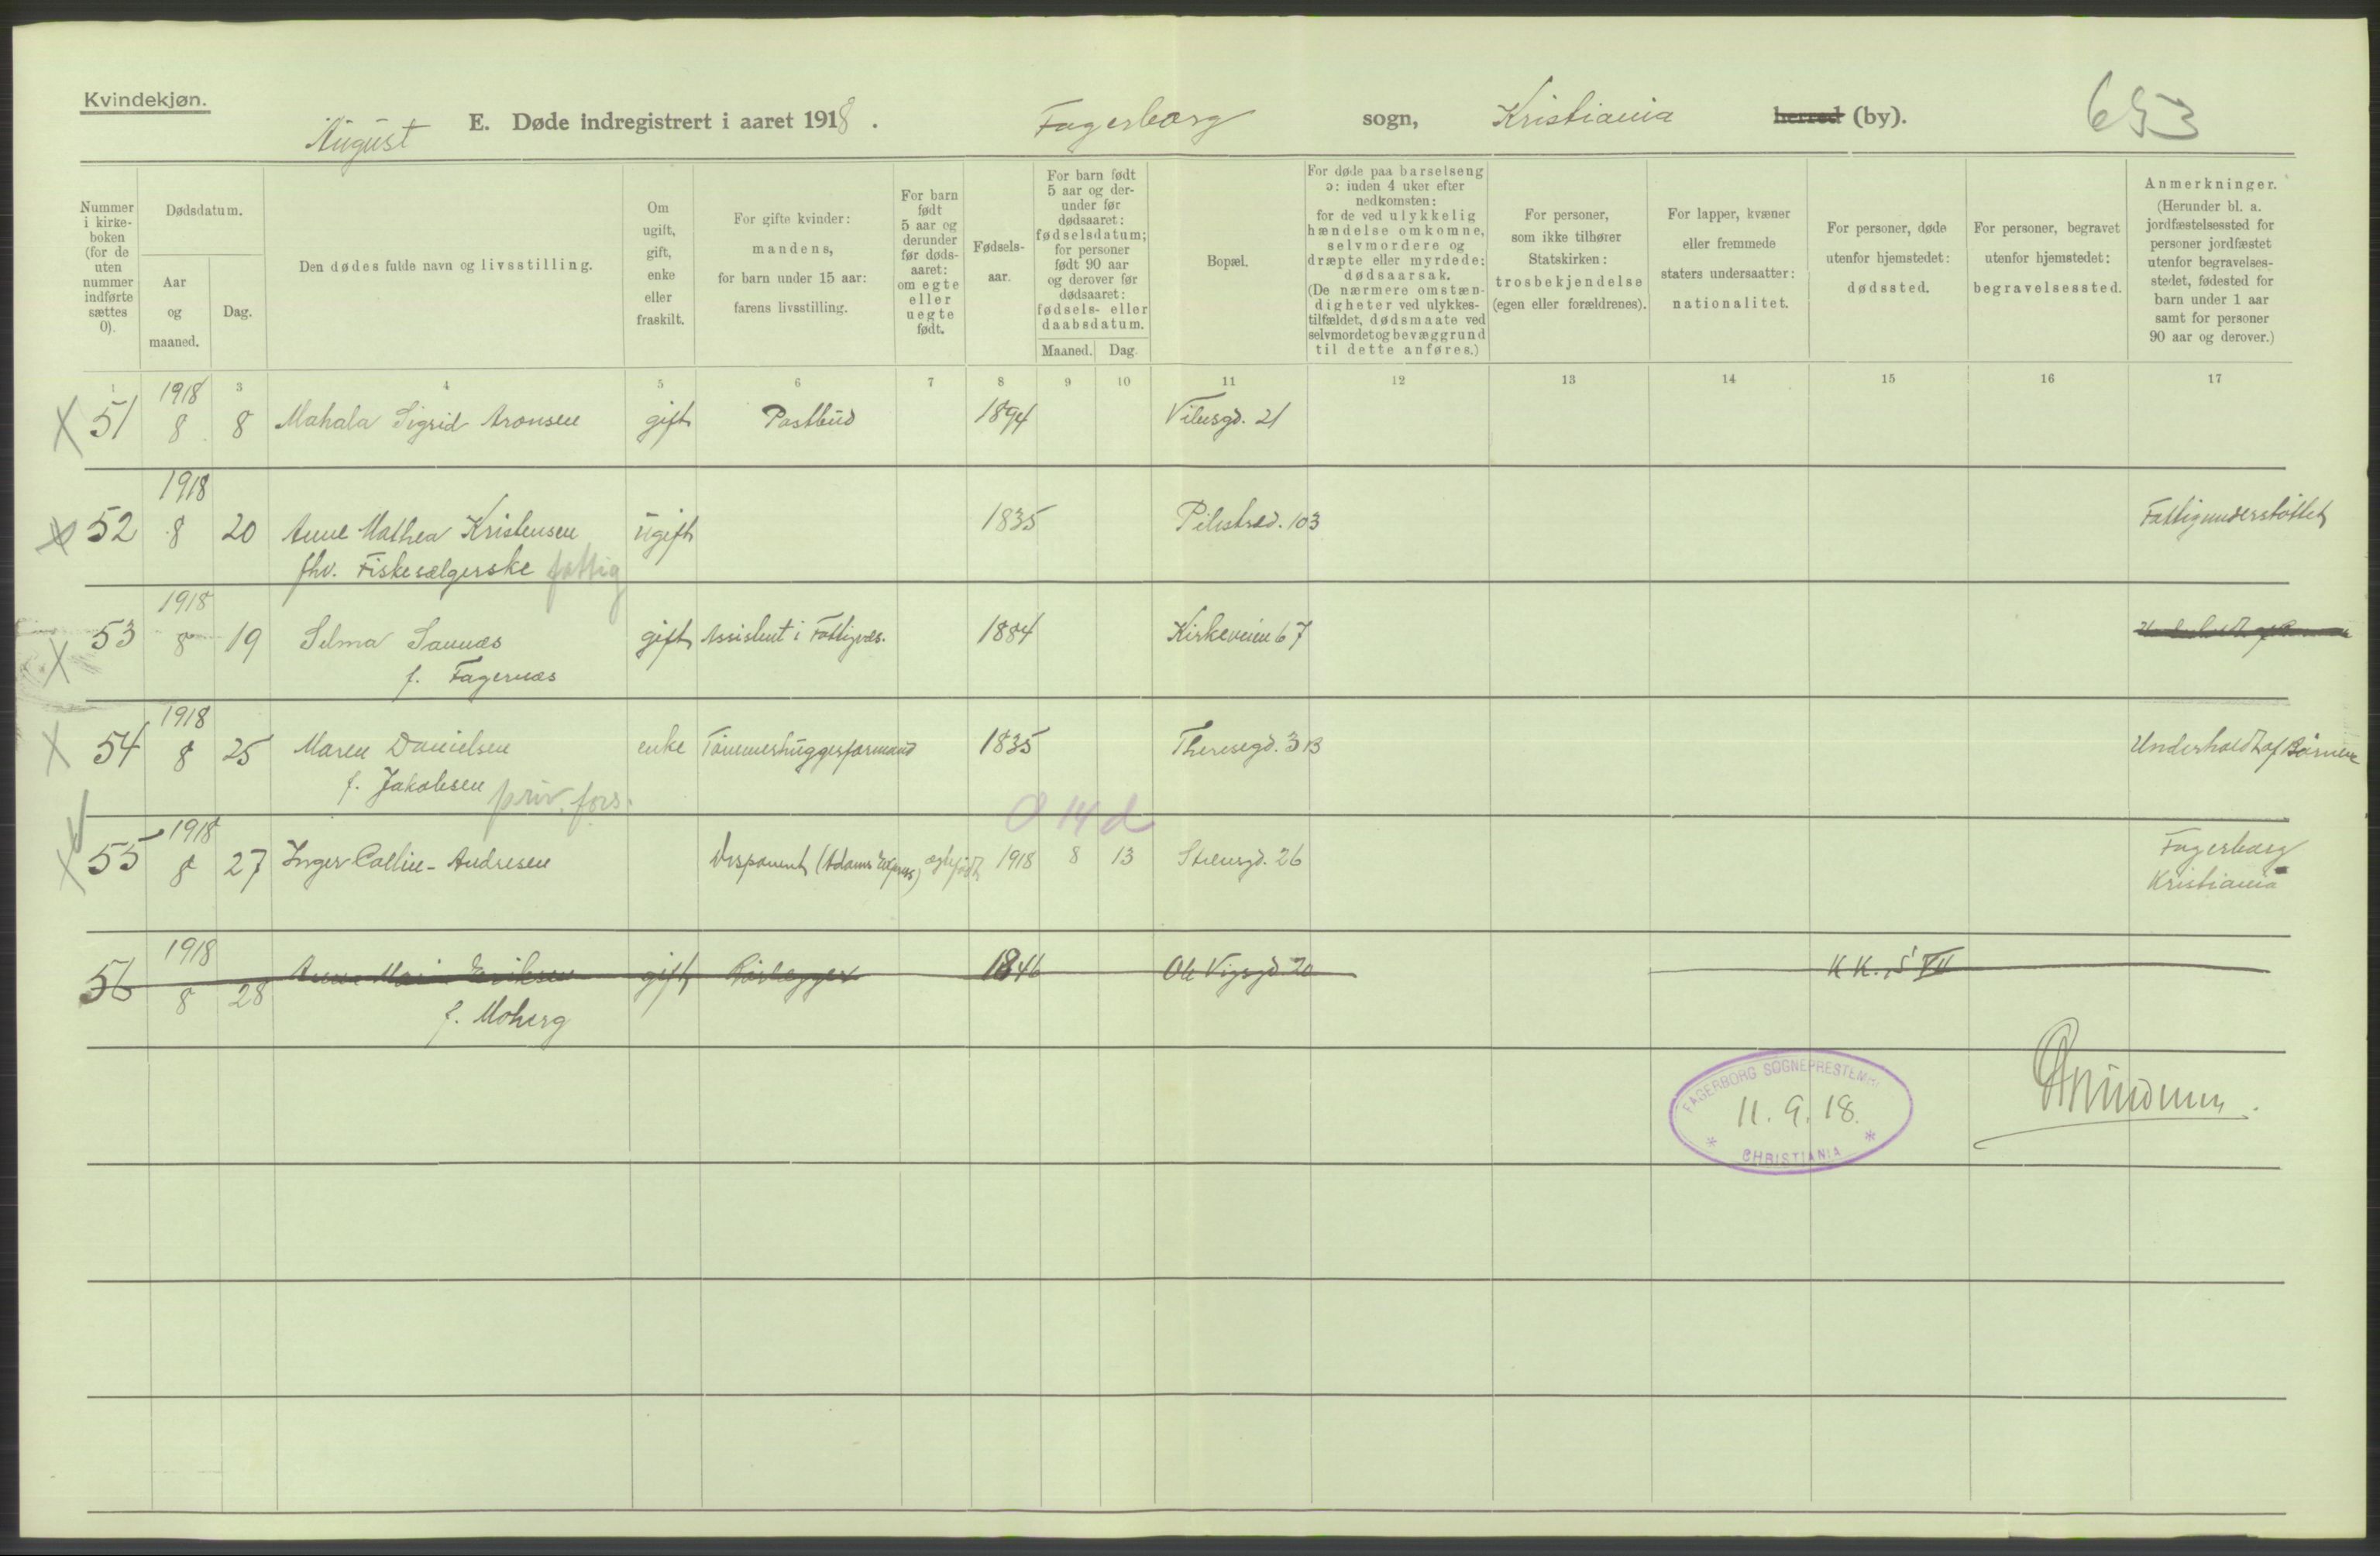 Kvindekjøn.
August E. Døde indregistrert i aaret 1918. Fagerborg sogn, Kristiania herred (by). 653
Nummer i kirke-boken (for de uten nummer indførte sættes 0).
Dødsdatum.
Aar og maaned.
Dag.
Den dødes fulde navn og livsstilling.
Om ugift, gift, enke eller fraskilt.
For gifte kvinder: mandens, for barn under 15 aar: farens livsstilling.
For barn født 5 aar og derunder før døds-aaret: om egte eller uegte født.
Fødsels-aar.
For barn født 5 aar og der-under før dødsaaret: fødselsdatum; for personer født 90 aar og derover før dødsaaret: fødsels- eller daabsdatum.
Maaned. Dag.
Bopæl.
For døde paa barselseng ɔ: inden 4 uker efter nedkomsten: for de ved ulykkelig hændelse omkomne, selvmordere og dræpte eller myrdede: dødsaarsak. (De nærmere omstæn-digheter ved ulykkes-tilfældet, dødsmaate ved selvmordet og bevæggrund til dette anføres.)
For personer, som ikke tilhører Statskirken: trosbekjendelse (egen eller forældrenes).
For lapper, kvæner eller fremmede staters undersaatter: nationalitet.
For personer, døde utenfor hjemstedet: dødssted.
For personer, begravet utenfor hjemstedet: begravelsessted.
Anmerkninger. (Herunder bl. a. jordfæstelsessted for personer jordfæstet utenfor begravelses-stedet, fødested for barn under 1 aar samt for personer 90 aar og derover.)
1 3 4 5 6 7 8 9 10 11 12 13 14 15 16 17
1918
X 51 8 8 Mahala Sigrid Aronsen gift Postbud 1894 Vibesgd. 21
1918
X 52 8 20 Anne Mathea Kristensen ugift 1835 Pilestræd. 103 Fattigunderstøttet
fhv. Fiskesælgerske fattig
1918
X 53 8 19 Selma Sannæs gift Assistent i Fattigvæs. 1884 Kirkeveien 67
f. Fagernæs
1918
X 54 8 25 Maren Danielsen enke Tømmerhuggerformand 1835 Theresegd. 3B Underholdt af Børnene
f. Jakobsen priv. fors.
0 14 d
1918
X 55 8 27 Inger Collin-Andresen Disponent (Adams Express) egtefødt 1918 8 13 Stensgd. 26 Fagerborg
Kristiania
1918
56 8 28 Anna Marie Eriksen gift Rørlegger 1846 Ole Vigsgd 20 KK.s VII
f. Moberg
FAGERBORG SOGNEPRESTEMB.
11. 9. 18.
* CHRISTIANIA *